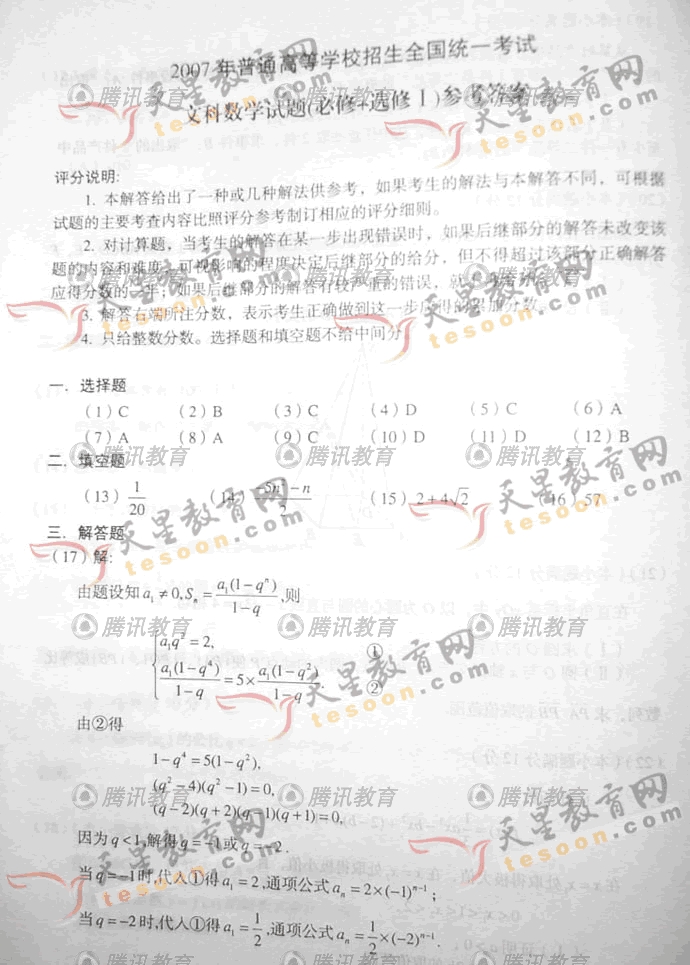 2007年普通高等学校招生全国统一考试
文科数学试题(必修+选修Ⅰ)参考答案
评分说明:
1. 本解答给出了一种或几种解法供参考，如果考生的解法与本解答不同，可根据
试题的主要考查内容比照评分参考制订相应的评分细则。
2. 对计算题，当考生的解答在某一步出现错误时，如果后继部分的解答未改变该
题的内容和难度，可视影响的程度决定后继部分的给分，但不得超过该部分正确解答
应得分数的一半；如果后继部分的解答有较严重的错误，就
3. 解答右端所注分数，表示考生正确做到这一步应得的累加分数。
4. 只给整数分数。选择题和填空题不给中间分
一．选择题
(1) C (2) B (3) C (4) D (5) C (6) A
(7) A (8) A (9) C (10) D (11) D (12) B
二．填空题
(13) 1/20 (14) (5n²-n)/2 (15) 2+4√2 (16) 57
三．解答题
(17) 解:
由题设知 a₁≠0, Sₙ = a₁(1-qⁿ)/(1-q), 则
a₁q² = 2, ①
a₁(1-q⁴)/(1-q) = 5× a₁(1-q²)/(1-q). ②
由②得
1-q⁴ = 5(1-q²),
(q²-4)(q²-1) = 0,
(q-2)(q+2)(q-1)(q+1) = 0,
因为 q<1, 解得 q=-1 或 q=-2.
当 q=-1 时, 代入①得 a₁=2, 通项公式 aₙ = 2×(-1)ⁿ⁻¹;
当 q=-2 时, 代入①得 a₁ = 1/2, 通项公式 aₙ = 1/2×(-2)ⁿ⁻¹.
腾讯教育
天星教育网
tesoon.com